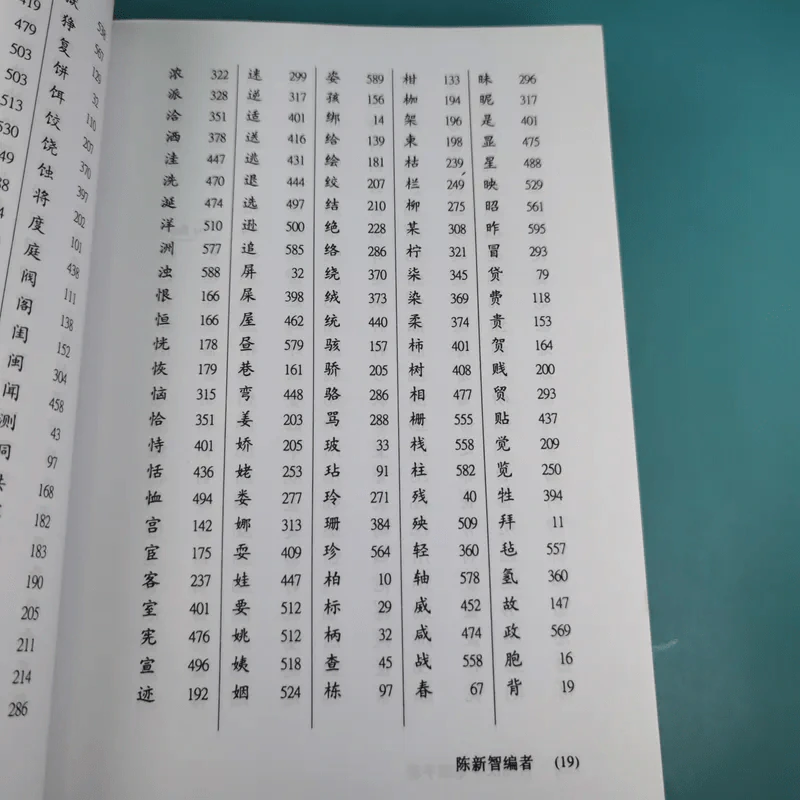 419
479
503
503
513
530
狰 567
复 120
饼 32
饵 110
饺 207
饶 370
蚀 397
将 202
度 101
庭 438
阀 111
阁 138
闺 152
闽 304
闻 458
测 43
洞 97
168
182
183
190
205
211
214
286
浓 322 迷 299 姿 589 柑 133 昧 296
派 328 逆 317 孩 156 枷 194 昵 317
洽 351 适 401 绑 14 架 196 是 401
洒 378 送 416 给 139 柬 198 显 475
洼 447 逃 431 绘 181 枯 239 星 488
洗 470 退 444 绞 207 栏 249 映 529
涎 474 选 497 结 210 柳 275 昭 561
洋 510 逊 500 绝 228 某 308 昨 595
洲 577 追 585 络 286 柠 321 冒 293
浊 588 屏 32 绕 370 柒 345 贷 79
恨 166 屎 398 绒 373 染 369 费 118
恒 166 屋 462 统 440 柔 374 贵 153
恍 178 昼 579 骇 157 柿 401 贺 164
恢 179 巷 161 骄 205 树 408 贱 200
恼 315 弯 448 骆 286 相 477 贸 293
恰 351 姜 203 骂 288 栅 555 贴 437
恃 401 娇 205 玻 33 栈 558 觉 209
恬 436 姥 253 玷 91 柱 582 览 250
恤 494 娄 277 玲 271 残 40 牲 394
宫 142 娜 313 珊 384 殃 509 拜 11
宦 175 耍 409 珍 564 轻 360 毡 557
客 237 娃 447 柏 10 轴 578 氢 360
室 401 要 512 标 29 威 452 故 147
宪 476 姚 512 柄 32 咸 474 政 569
宣 496 姨 518 查 45 战 558 胞 16
迹 192 姻 524 栋 97 春 67 背 19
陈新智编者 (19)